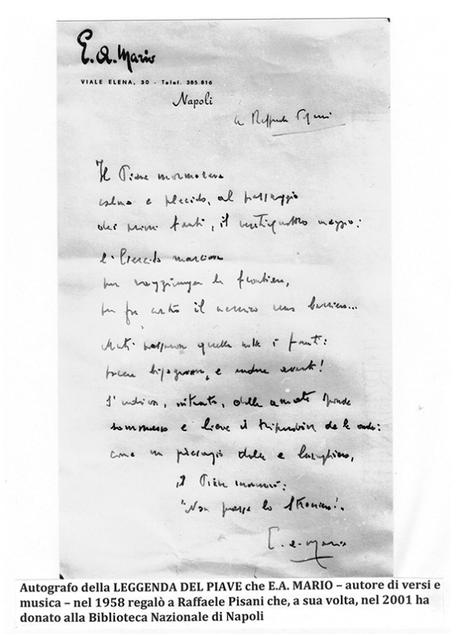 E. A. Mario
VIALE ELENA, 30 - Telef. 385.816
Napoli
a Raffaele Pisani
Il Piave mormorava
calmo e placido, al passaggio
dei primi fanti, il ventiquattro maggio:
l'Esercito marciava
per raggiunger la frontiera,
per far contro il nemico una barriera...
Muti passaron quella notte i fanti:
tacere bisognava, e andare avanti!
S'udiva, intanto, dalle amate sponde
sommesso e lieve il tripudiar de le onde:
come un presagio dolce e lusinghiero,
il Piave mormorò:
"Non passa lo Straniero!"
E. A. Mario
Autografo della LEGGENDA DEL PIAVE che E.A. MARIO – autore di versi e
musica – nel 1958 regalò a Raffaele Pisani che, a sua volta, nel 2001 ha
donato alla Biblioteca Nazionale di Napoli